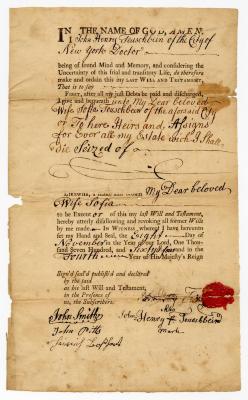 IN THE NAME OF GOD, AMEN.
I John Henry Teuschbein of the City of
New York Doctor
being of sound Mind and Memory, and considering the
Uncertainty of this frail and transitory Life, do therefore
make and ordain this my LAST WILL AND TESTAMENT,
That is to say
FIRST, after all my just Debts be paid and discharged,
I give and bequeath unto My Dear beloved
Wife Sofia Teuschbein of the aforesaid City
To here Heirs and Assigns
for Ever all my Estate wich I Shall
Die Seized of
LIKEWISE, I
My Dear beloved
Wife Sofia
to be EXECUTOR of this my last Will and Testament,
hereby utterly disallowing and revoking all former Wills
by me made. IN WITNESS, whereof I have hereunto
set my Hand and Seal, the Eight Day of
November in the Year of our Lord, One Thou-
sand Seven Hundred, and Sixty four and in the
Fourth Year of His Majesty's Reign
Sign'd seal'd publish'd and declared
by the said
as his last Will and Testament,
in the Presence of
us, the Subscribers
John Smith
John Pitts
John Henry Teuschbein
mark